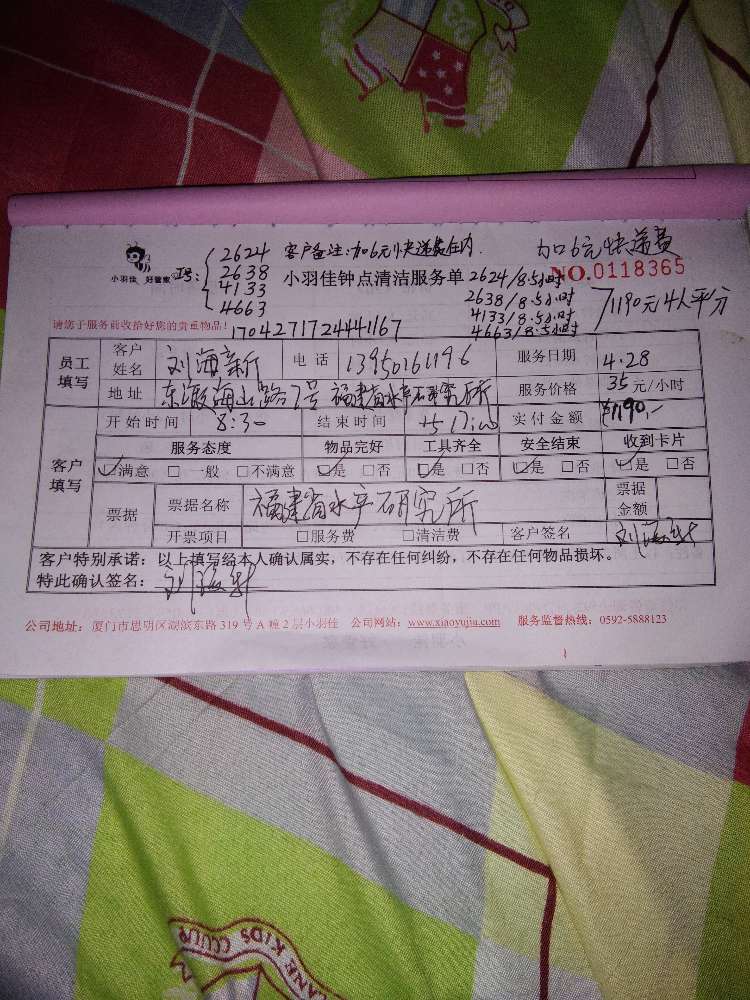 2624 客户备注:加6元快递费在内. 加6元快递费
小羽佳 好管家 工号: 2638 小羽佳钟点清洁服务单 2624/8.5小时 NO.0118365
4133 2638/8.5小时 1190元4人平分
4663 4133/8.5小时
请您于服务前收拾好您的贵重物品! 1704271724441167 4663/8.5小时
员工填写 客户姓名 刘海新 电话 13950161196 服务日期 4.28
地址 东渡海山路7号 福建省水产研究所 服务价格 35元/小时
客户填写 开始时间 8:30 结束时间 17:00 实付金额 ¥1190,-
服务态度 物品完好 工具齐全 安全结束 收到卡片
☑满意 □一般 □不满意 ☑是 □否 ☑是 □否 ☑是 □否 ☑是 □否
票据 票据名称 福建省水产研究所 票据金额
开票项目 □服务费 □清洁费 客户签名 刘海新
客户特别承诺:以上填写经本人确认属实,不存在任何纠纷,不存在任何物品损坏。
特此确认签名: 刘海新
公司地址:厦门市思明区湖滨东路 319 号 A 幢 2 层小羽佳 公司网站:www.xiaoyujia.com 服务监督热线:0592-5888123
KIDS CLUB